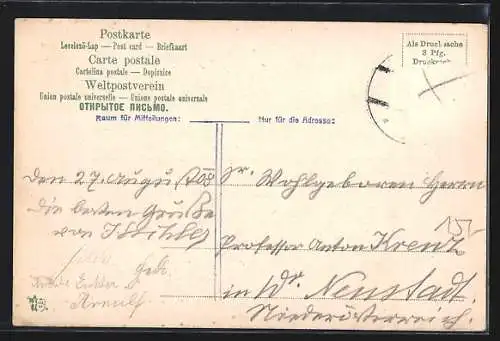 Postkarte
Levelező-Lap — Post card — Briefkaart
Carte postale
Cartolina postale — Dopisnice
Weltpostverein
Union postale universelle — Unione postale universale
ОТКРЫТОЕ ПИСЬМО.
Raum für Mitteilungen:
Nur für die Adresse:
Als Drucksache
3 Pfg.
Den 27. August 08
Die besten Grüße
von
Sr. Wohlgeboren Herrn
Professor Anton Krenz
in Wr. Neustadt.
Niederösterreich.